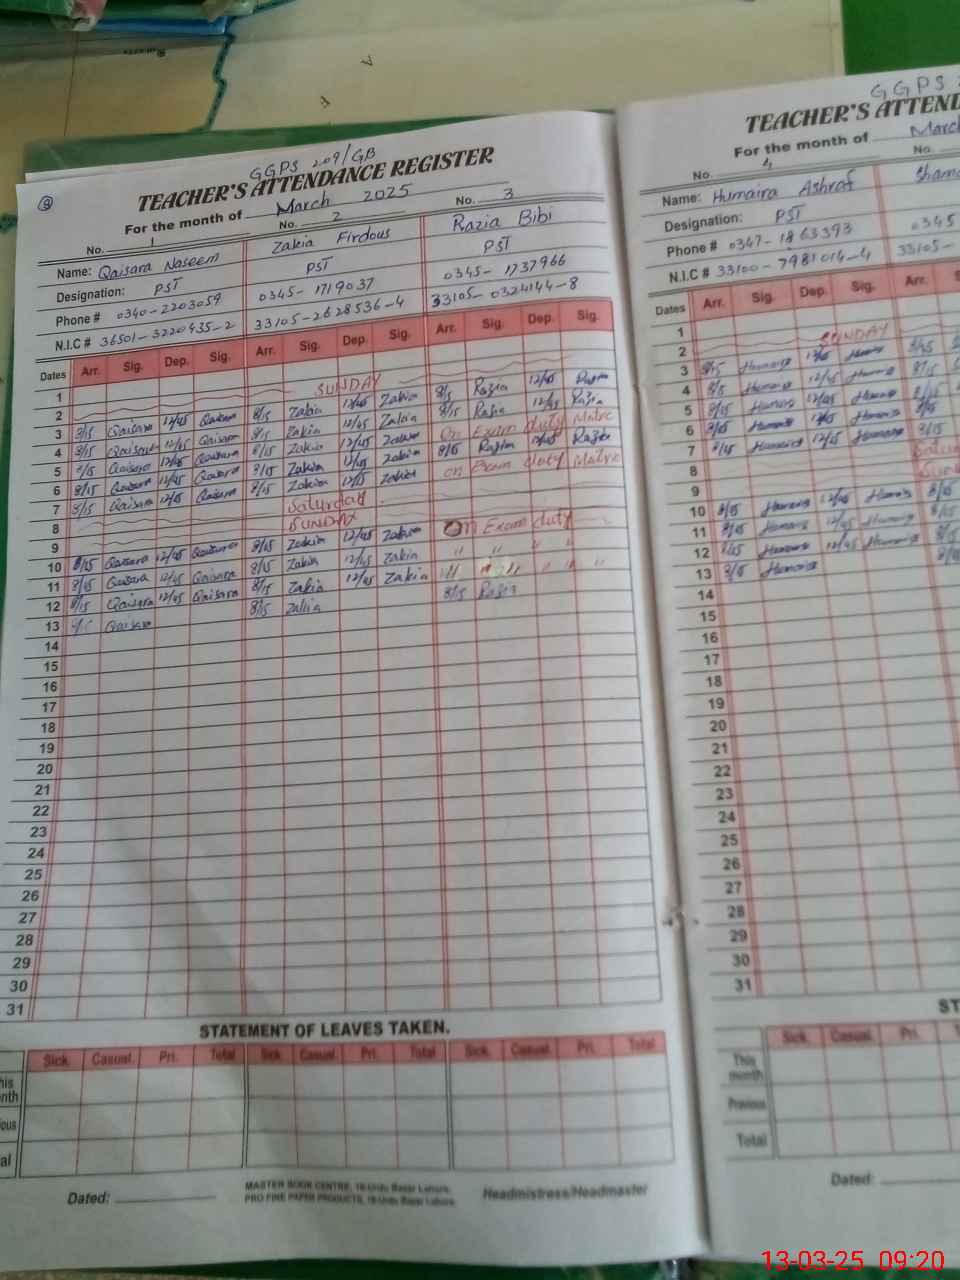 GGPS 209/GB
TEACHER'S ATTENDANCE REGISTER
For the month of March 2025
No. 1 No. 2 No. 3
Name: Qaisara Naseem Zakia Firdous Razia Bibi
Designation: PST PST PST
Phone # 0340-2203059 0345-1719037 0345-1737966
N.I.C # 36501-3220435-2 33105-2628536-4 33105-0324144-8
Dates Arr. Sig. Dep. Sig. Arr. Sig. Dep. Sig. Arr. Sig. Dep. Sig.
1
2 SUNDAY
3 8/15 Qaisara 12/45 Qaisara 8/15 Zakia 12/45 Zakia 8/15 Razia 12/45 Razia
4 8/15 Qaisara 12/45 Qaisara 8/15 Zakia 12/45 Zakia 8/15 Razia 12/45 Razia
5 8/15 Qaisara 12/45 Qaisara 8/15 Zakia 12/45 Zakia On Exam duty Matric
6 8/15 Qaisara 12/45 Qaisara 8/15 Zakia 12/45 Zakia 8/15 Razia 12/45 Razia
7 8/15 Qaisara 12/45 Qaisara 8/15 Zakia 12/15 Zakia on Exam duty Matric
8 Saturday
9 SUNDAY
10 8/15 Qaisara 12/45 Qaisara 8/15 Zakia 12/45 Zakia On Exam duty
11 8/15 Qaisara 12/45 Qaisara 8/15 Zakia 12/45 Zakia " " " "
12 8/15 Qaisara 12/45 Qaisara 8/15 Zakia 12/45 Zakia " " " " "
13 Qaisara 8/15 Zakia 8/15 Razia
14
15
16
17
18
19
20
21
22
23
24
25
26
27
28
29
30
31
STATEMENT OF LEAVES TAKEN.
Sick. Casual. Pri. Total Sick. Casual. Pri. Total Sick. Casual. Pri. Total
Dated:
MASTER BOOK CENTRE, 16-Urdu Bazar Lahore.
PRO FINE PAPER PRODUCTS, 16-Urdu Bazar Lahore.
Headmistress/Headmaster
GGPS
TEACHER'S ATTEND
For the month of March
No. 4 No.
Name: Humaira Ashraf
Designation: PST
Phone # 0347-1863393 0345
N.I.C # 33100-7981014-4 33105-
Dates Arr. Sig. Dep. Sig. Arr.
1
2 SUNDAY
3 8/15 Humaira 12/45 Humaira 8/15
4 8/15 Humaira 12/45 Humaira 8/15
5 8/15 Humaira 12/45 Humaira
6 8/15 Humaira 12/45 Humaira 8/15
7 8/15 Humaira 12/45 Humaira 8/15
8
9
10 8/15 Humaira 12/45 Humaira 8/15
11 8/15 Humaira 12/45 Humaira 8/15
12 8/15 Humaira 12/45 Humaira
13 8/15 Humaira
14
15
16
17
18
19
20
21
22
23
24
25
26
27
28
29
30
31
ST
Sick. Casual. Pri.
This month
Previous
Total
Dated:
13-03-25 09:20